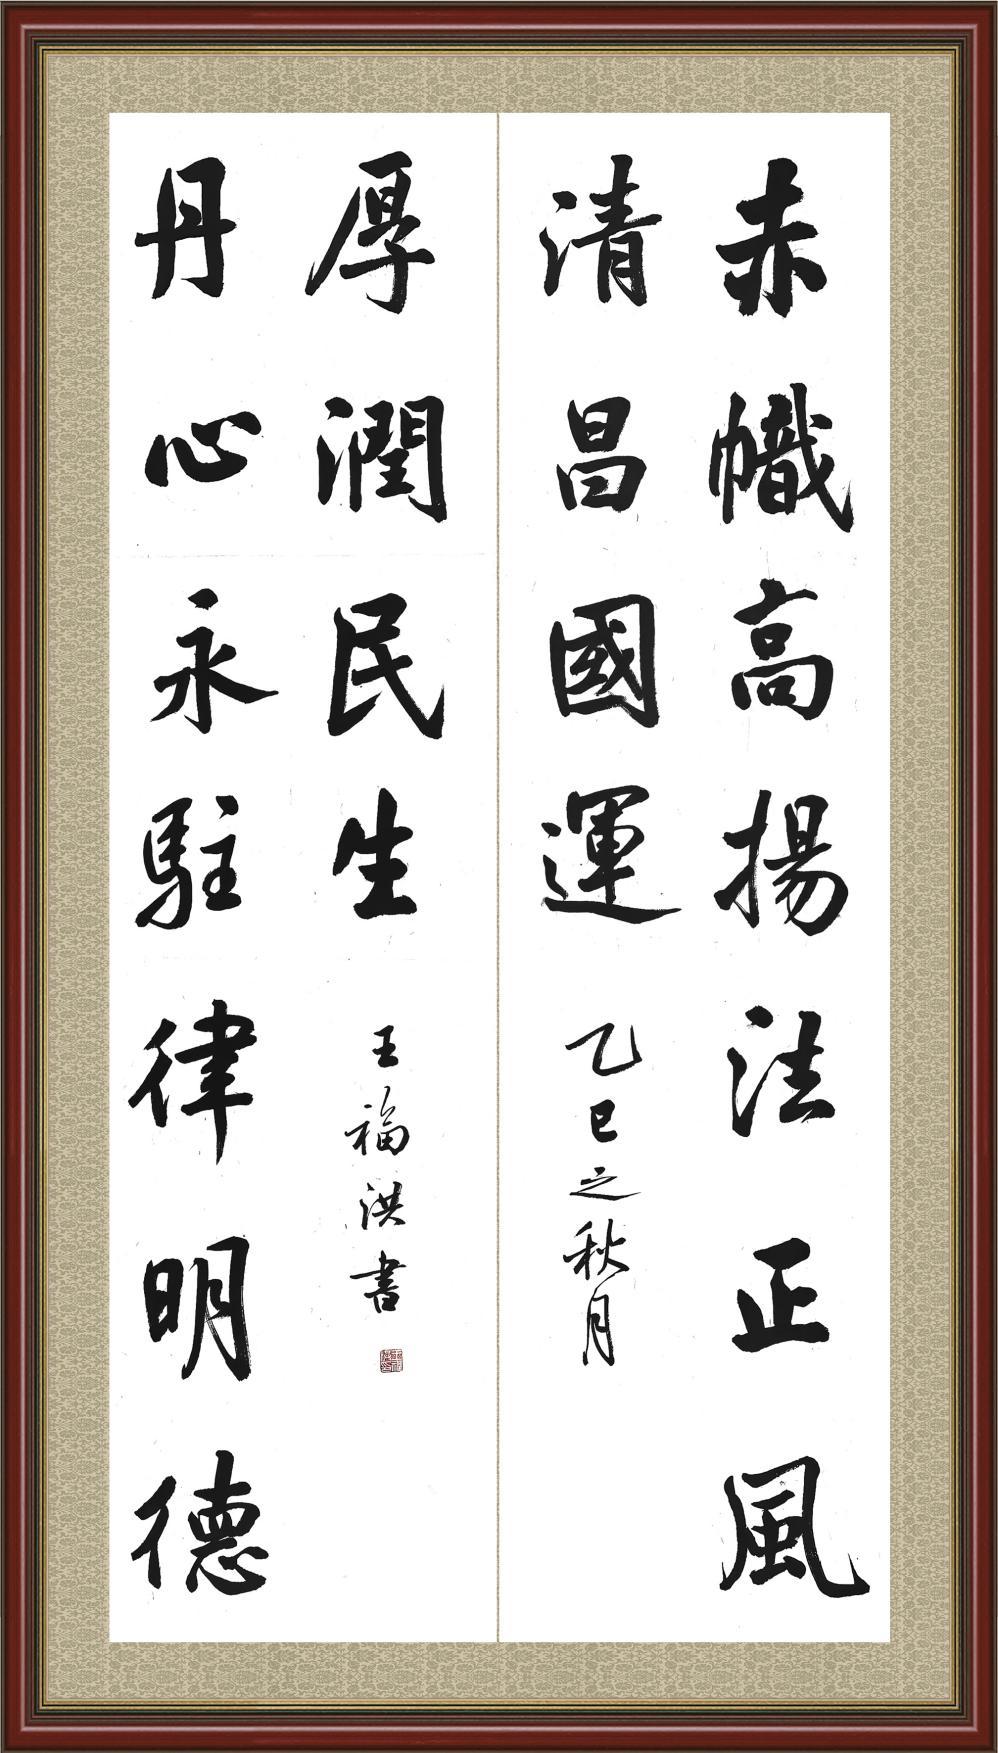 赤幟高揚法正風
清昌國運
乙巳之秋月
丹心永駐律明德
厚潤民生
王福洪書